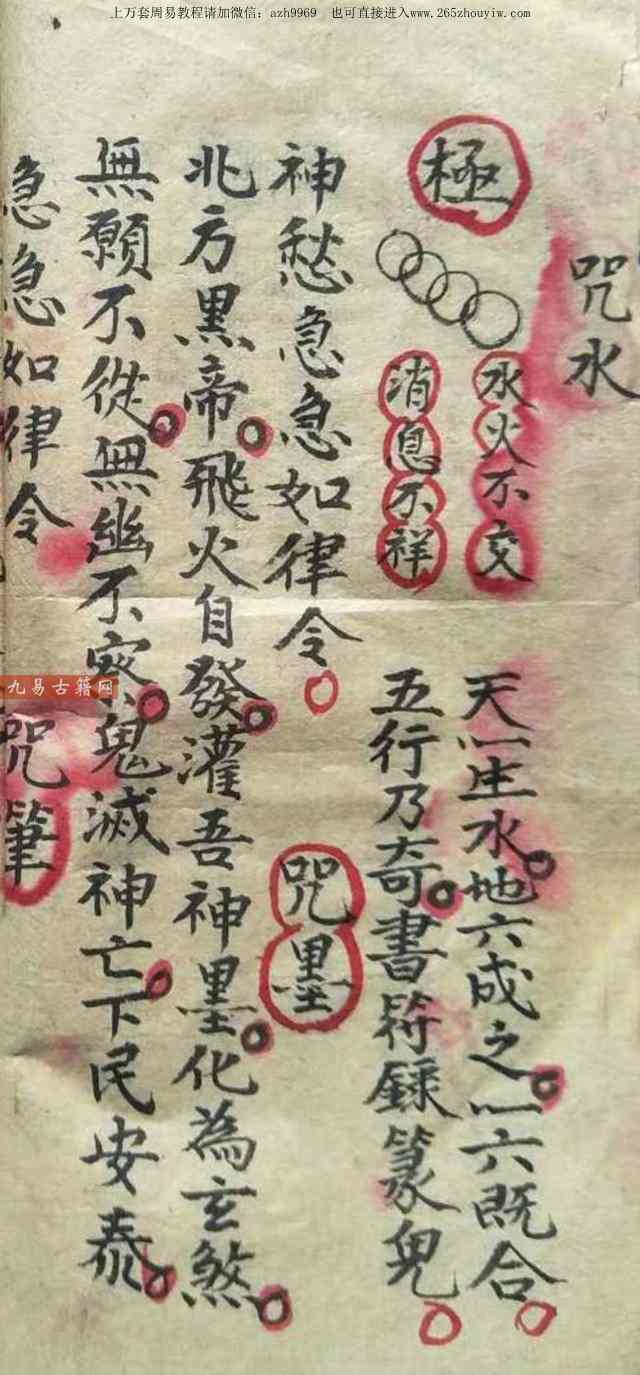 上万套周易教程请加微信：azh9969　也可直接进入www.265zhouyiw.com
咒水
水火不交
消息不祥
極
天一生水地六成之一六既合
五行乃奇書符籙篆鬼
神愁急急如律令
咒墨
北方黑帝飛火自發灌吾神墨化為玄煞
無願不從無幽不察鬼滅神亡下民安泰
急急如律令
咒筆
九易古籍网